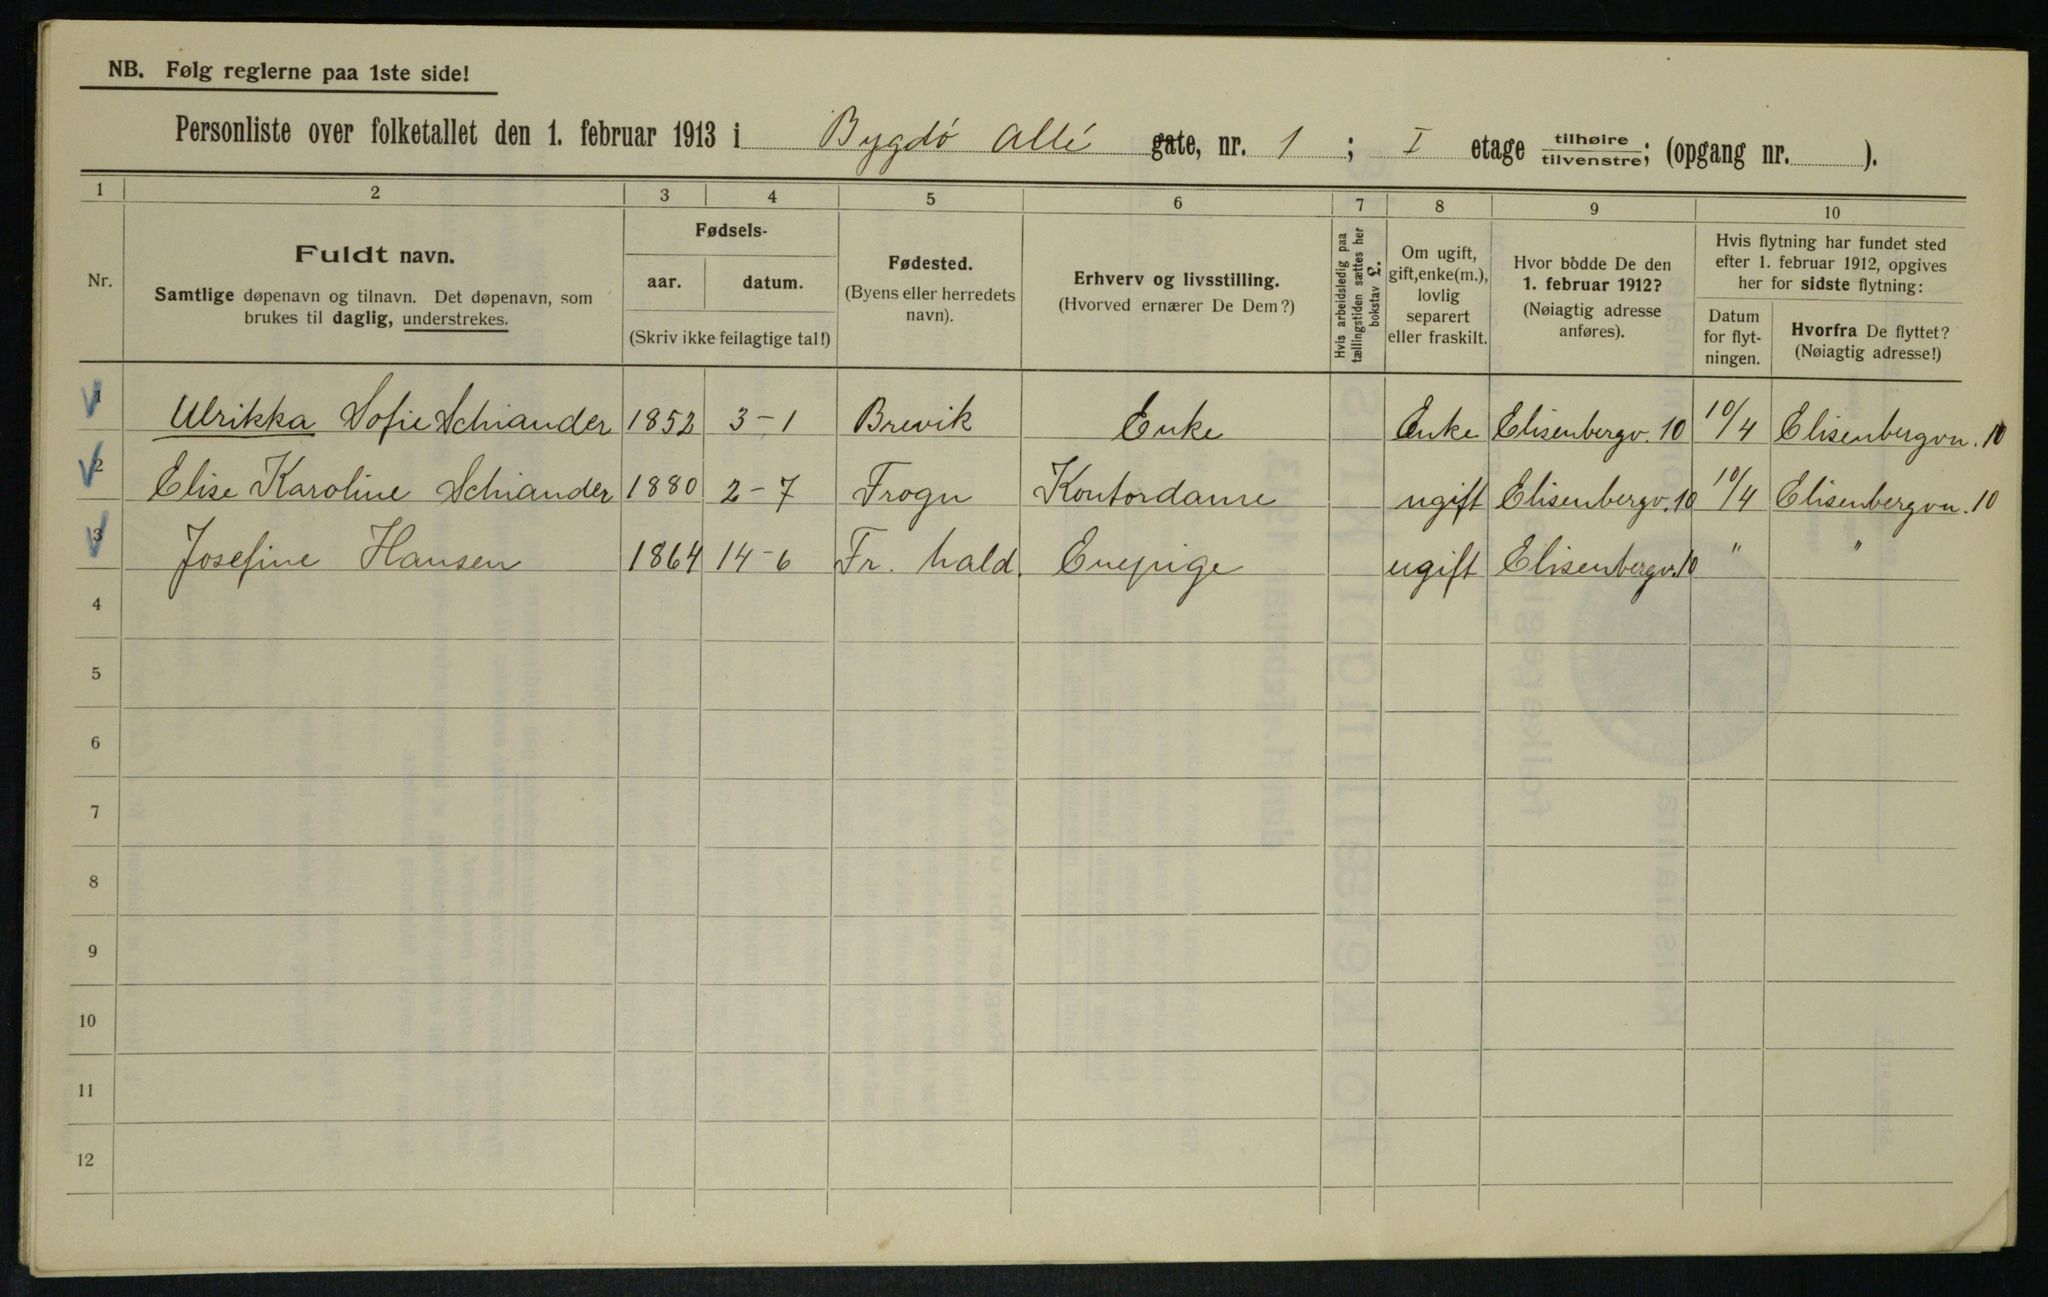 NB. Følg reglerne paa 1ste side!
Personliste over folketallet den 1. februar 1913 i Bygdö Allé gate, nr. 1 ; I etage tilhøire tilvenstre; (opgang nr. ).
1 2 3 4 5 6 7 8 9 10
Nr.
Fuldt navn.
Samtlige døpenavn og tilnavn. Det døpenavn, som
brukes til daglig, understrekes.
Fødsels-
aar. datum.
(Skriv ikke feilagtige tal!)
Fødested.
(Byens eller herredets
navn).
Erhverv og livsstilling.
(Hvorved ernærer De Dem?)
Hvis arbeidsledig paa
tællingstiden sættes her
bokstav L.
Om ugift,
gift, enke(m.),
lovlig
separert
eller fraskilt.
Hvor bodde De den
1. februar 1912?
(Nøiagtig adresse
anføres).
Hvis flytning har fundet sted
efter 1. februar 1912, opgives
her for sidste flytning:
Datum
for flyt-
ningen.
Hvorfra De flyttet?
(Nøiagtig adresse!)
1 Ulrikka Sofie Schiander 1852 3-1 Brevik Enke Enke Elisenbergv. 10 10/4 Elisenbergvn. 10
2 Elise Karoline Schiander 1880 2-7 Frogn Kontordame ugift Elisenbergv. 10 10/4 Elisenbergvn. 10
3 Josefine Hansen 1864 14-6 Fr. hald. Enepige ugift Elisenbergv. 10 " "
4
5
6
7
8
9
10
11
12